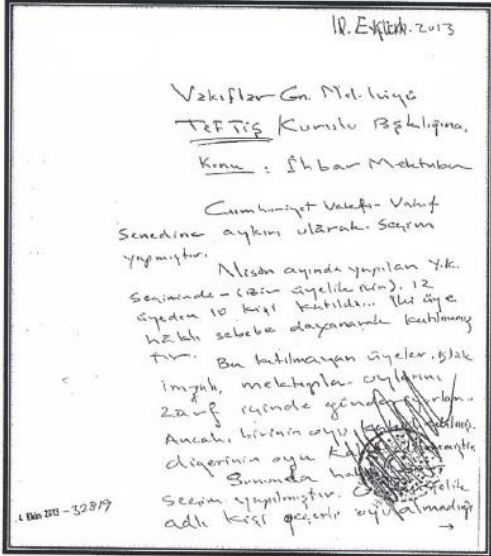 10. Eylül. 2013
Vakıflar Gn. Md. lüğü
TEFTİŞ Kurulu Bşklığına,
Konu : İhbar Mektubu
Cumhuriyet Vakfı- Vakıf
Senedine aykırı olarak. Seçim
yapmıştır.
Nisan ayında yapılan Y.K.
Seçiminde - ( üyelik için ), 12
üyeden 10 kişi katıldı... İki üye
haklı sebebe dayanarak katılmamış
tır.
Bu katılmayan üyeler, ıslak
imzalı, mektupla- oylarını
Zarf içinde
Ancak, birinin oyu kabul edilmiş.
diğerinin oyu
seçim yapılmıştır.
adlı kişi geçerli oyu almadığı
→
4 Ekim 2013 -32819